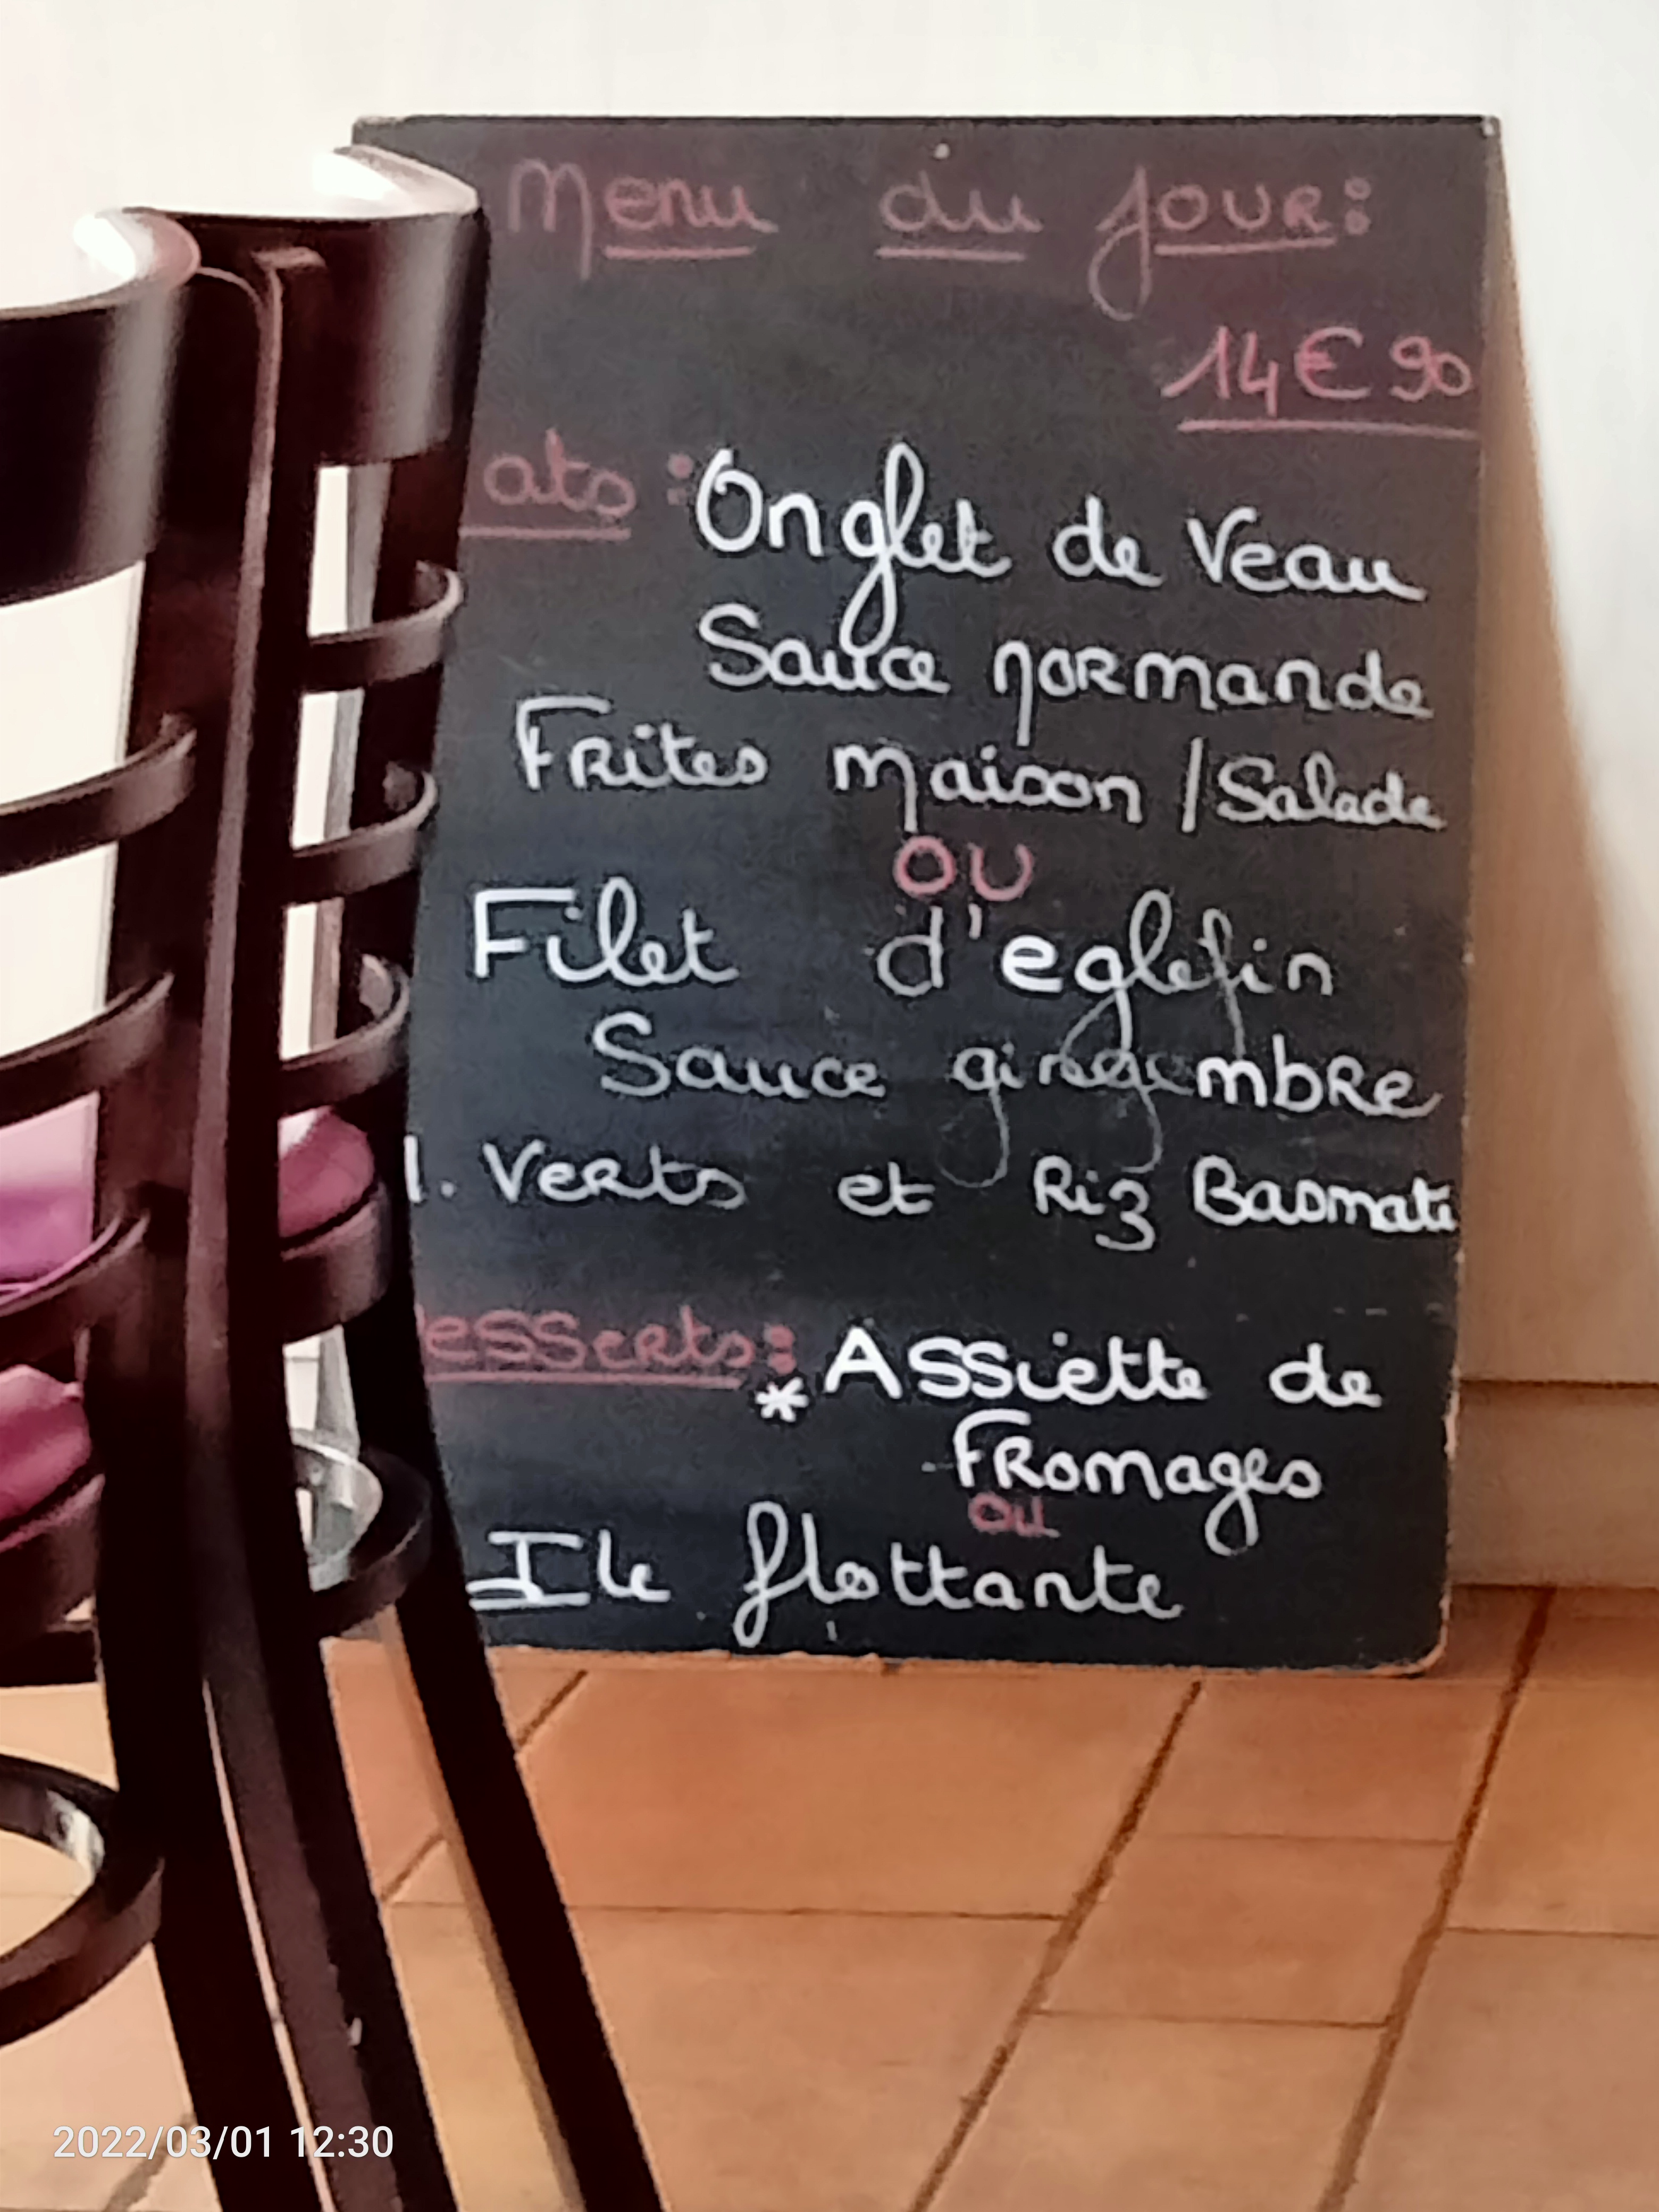 Menu du jour:
14€90
ats: Onglet de Veau
Sauce normande
Frites maison / Salade
OU
Filet d'eglefin
Sauce gingembre
. Verts et Riz Basmati
esserts: Assiette de
* Fromages
ou
Ile flottante
2022/03/01 12:30